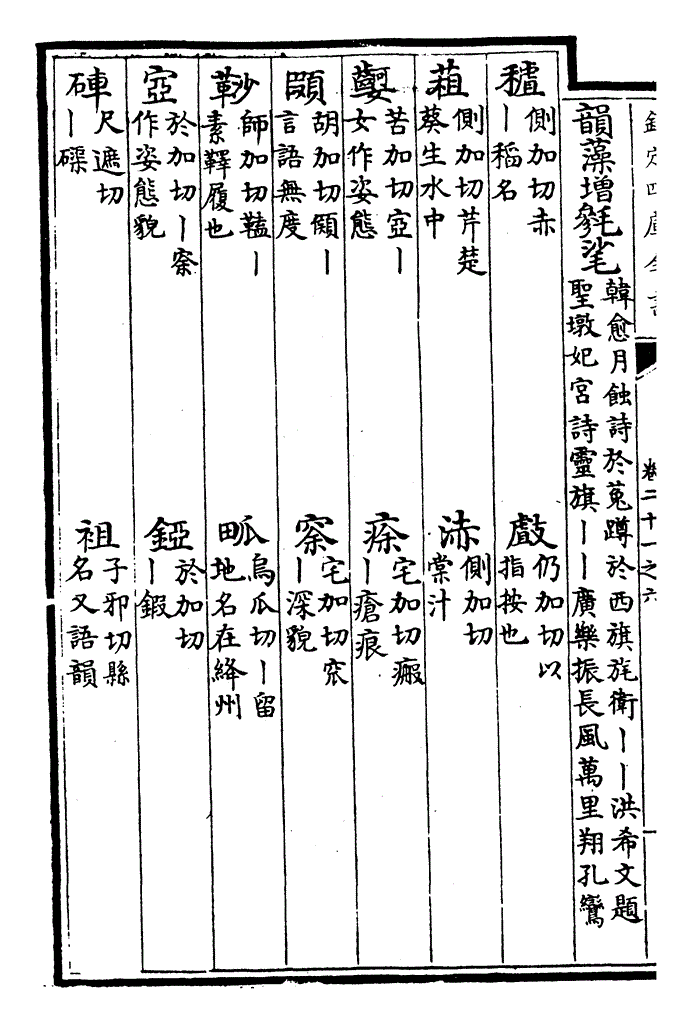 欽定四庫全書　卷二十一之六
韻藻增毿毟
韓愈月蝕詩於菟蹲於西旗旄衛丨丨洪希文題
聖墩妃宮詩靈旗丨丨廣樂振長風萬里翔孔鸞
側加切赤丨稻名
仍加切以指按也
蒩側加切芹楚葵生水中
浾側加切棠汁
苦加切㝞丨女作姿態
宅加切瘢丨瘡痕
胡加切丨言語無度
宅加切窊丨深貌
師加切丨素鞾履也
㽿烏瓜切丨留地名在絳州
㝞於加切丨作姿態貌
錏於加切丨鍜
硨尺遮切丨磲
袓子邪切縣名又語韻